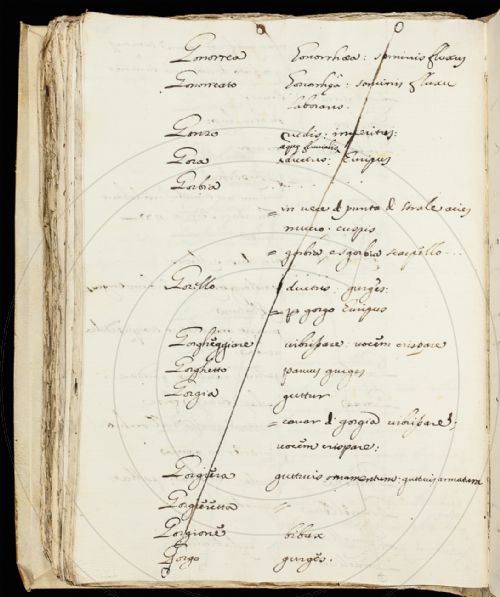 Gonorrea Gonorrhaea: seminis fluxus
Gonorreato seminis fluxu
laborans.
Gonzo rudis: imperitus:
aquae fluvialis
Gora ductus: Euripus
Gorbia . . . . . .
= in vece di punta di strale acies
mucro. cuspis
= gorbia e sgorbia scarpello ...
Gorello ductus. gurges:
= p gorgo Euripus
Gorgheggiare vibrissare. vocem crispare
Gorghetto parvus gurges
Gorgia guttur
= cavar di gorgia vibrissare;
vocem crispare:
Gorgiera gutturis ornamentum: gutturis armatura
Gorgieretta "
Gorgione bibax
Gorgo gurges.